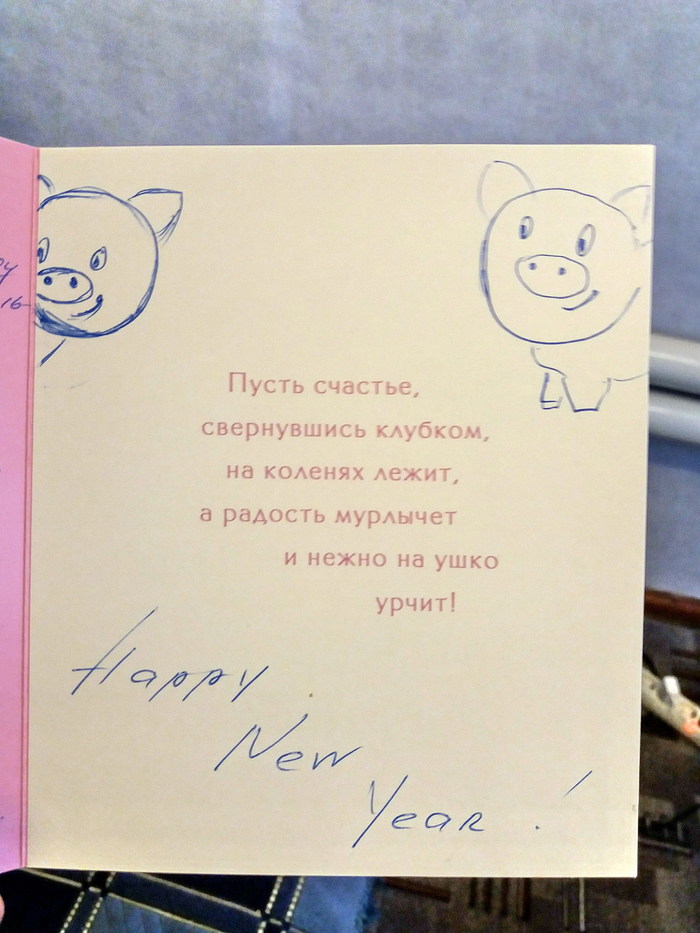 Пусть счастье,
свернувшись клубком,
на коленях лежит,
а радость мурлычет
и нежно на ушко
урчит!
Happy
New
Year!